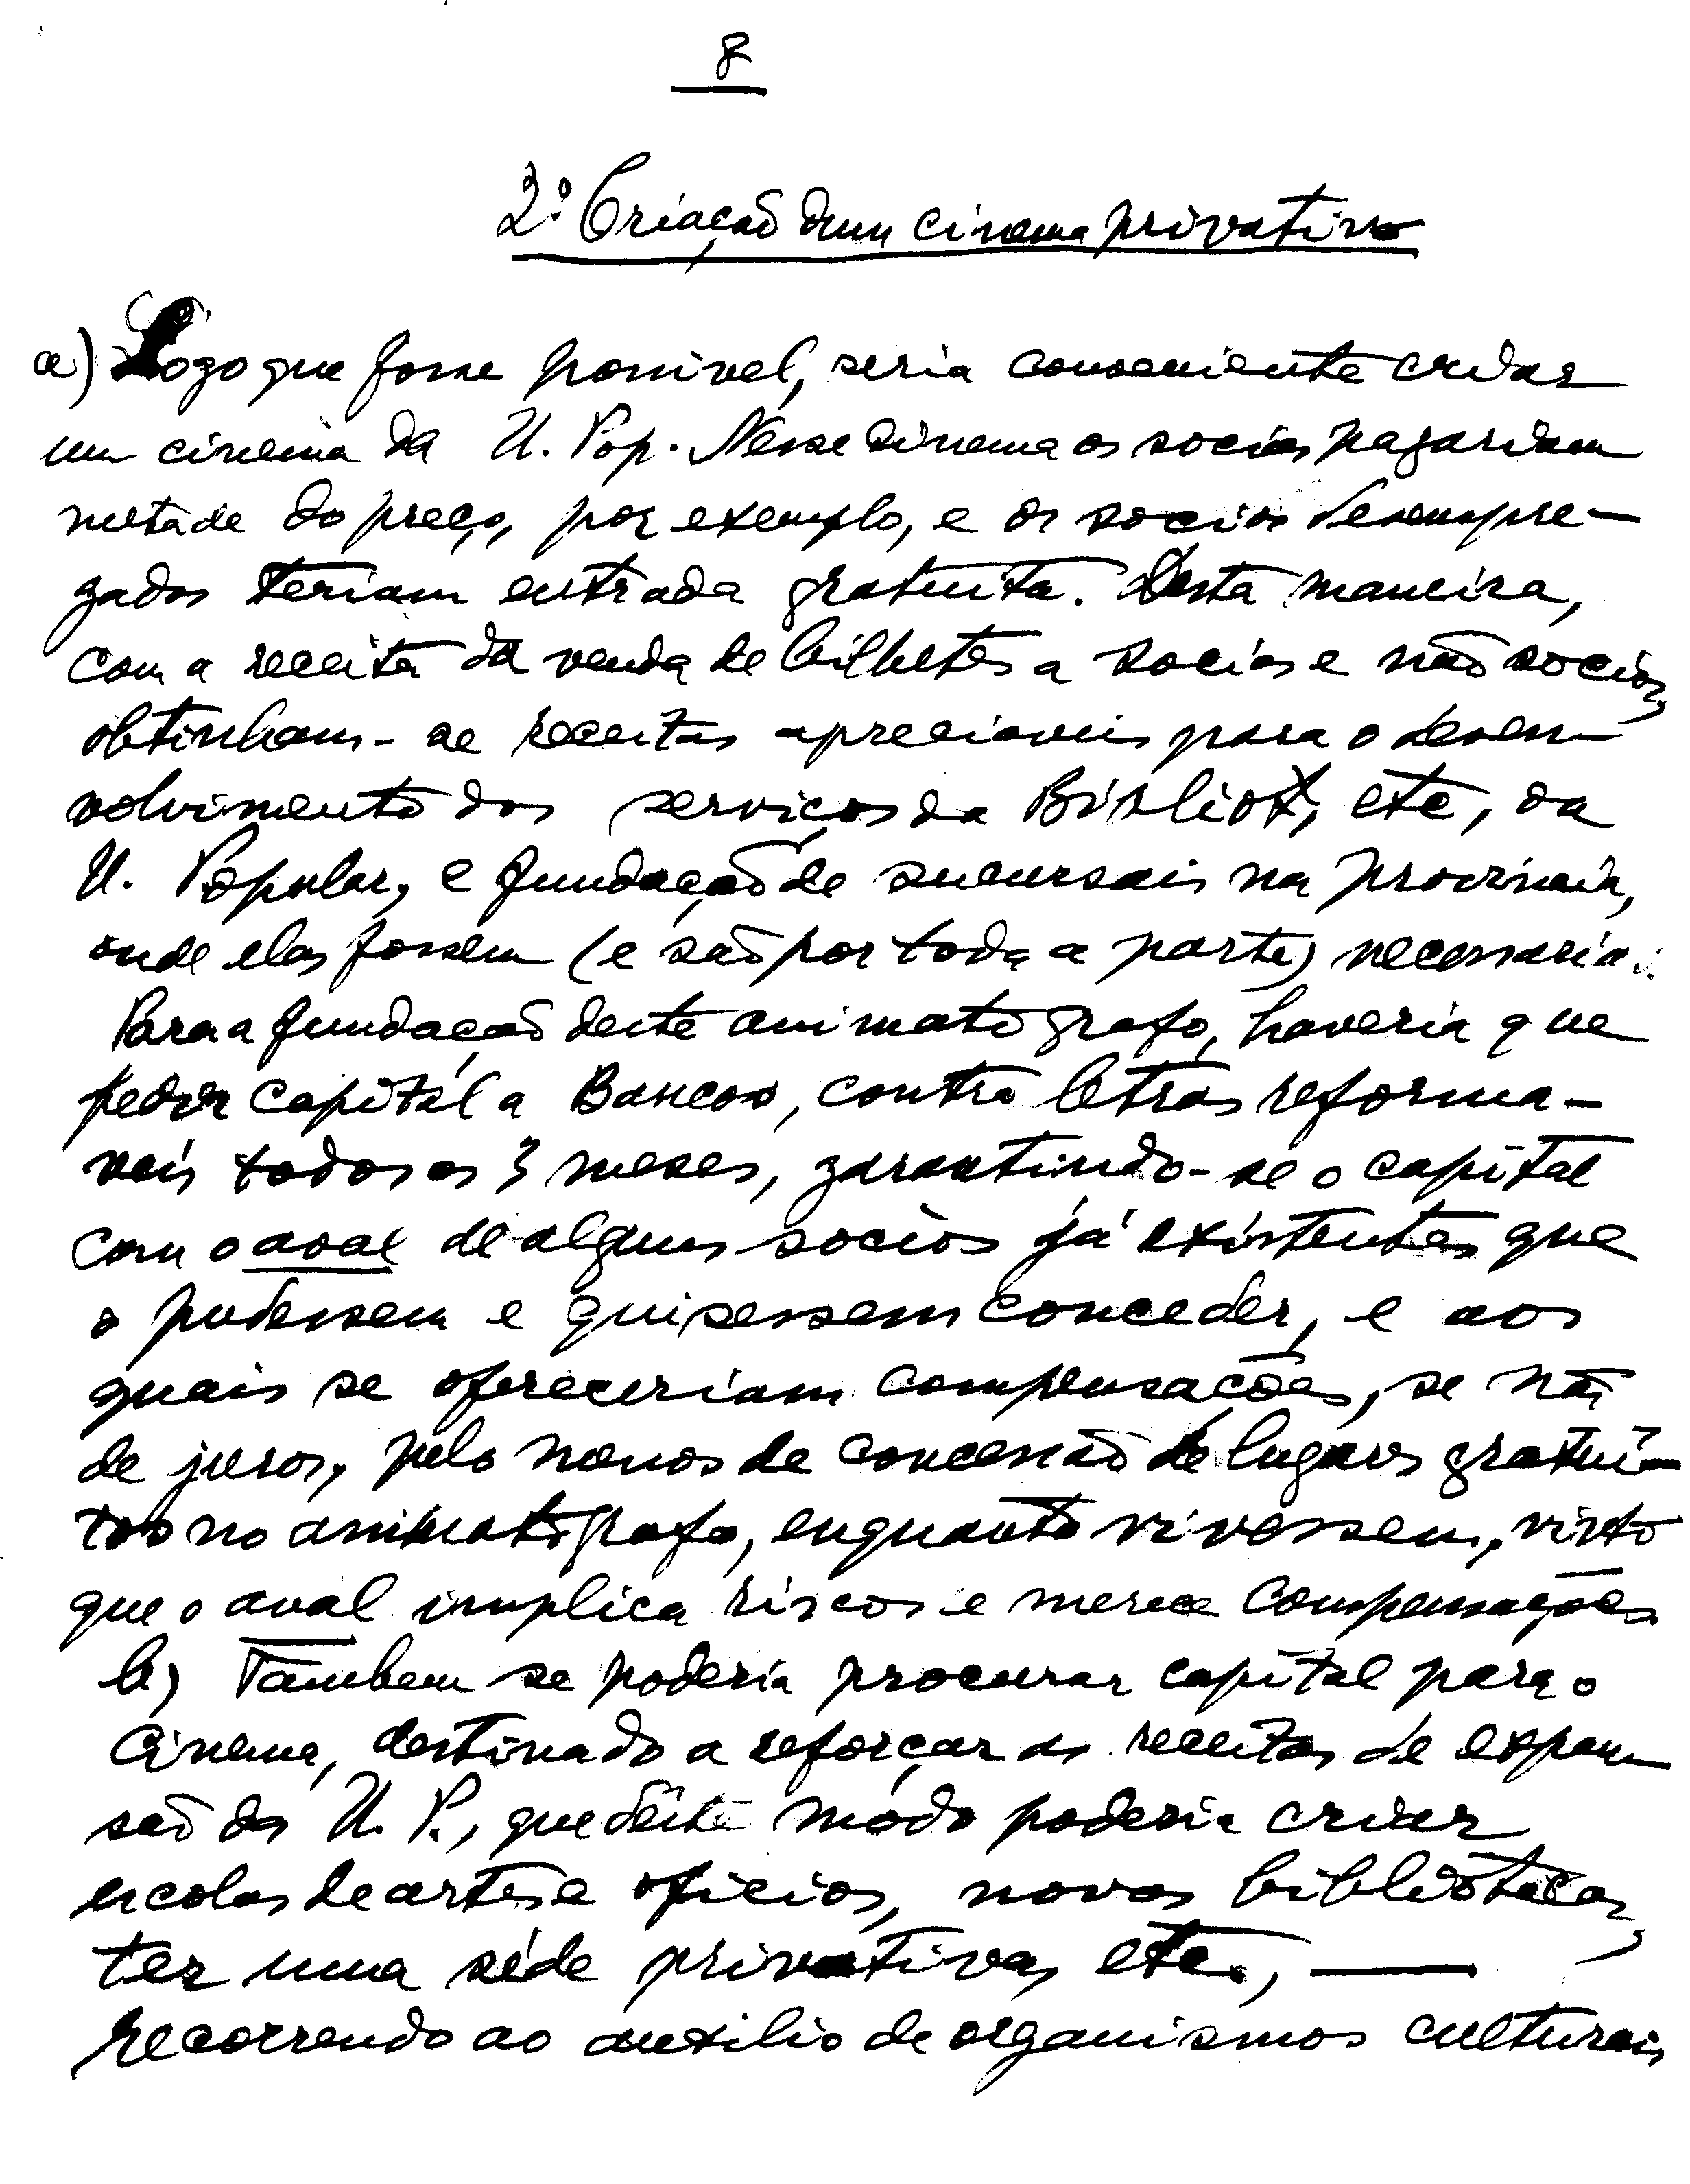 8
2.º Criação dum cinema privativo
a) Logo que fosse possivel, seria conveniente criar
um cinema da U. Pop. Nesse cinema os socios pagariam
metade do preço, por exemplo, e os socios desempre-
gados teriam entrada gratuita. Desta maneira,
com a receita da venda de bilhetes a socios e não socios,
obtinham-se receitas apreciaveis para o desen-
volvimento dos serviços da Bibliot, etc, da
U. Popular, e fundação de sucursais na provincia,
onde elas fossem (e são por toda a parte) necessarias.
Para a fundação deste animatografo, haveria que
pedir capital a Bancos, contra letras reforma-
veis todos os 3 meses, garantindo-se o capital
com o aval de alguns socios já existentes que
o pudessem e quisessem conceder, e aos
quais se ofereceriam compensações, se não
de juros, pelo menos de concessão de lugares gratui-
tos no animatografo, enquanto vivessem, visto
que o aval implica riscos e merece compensações
b) Tambem se poderia procurar capital para o
cinema, destinado a reforçar as receitas de expan
são da U. P., que dêste modo poderia criar
escolas de artes e oficios, novas bibliotecas,
ter uma séde privativa, etc., —
recorrendo ao auxilio de organismos culturais,